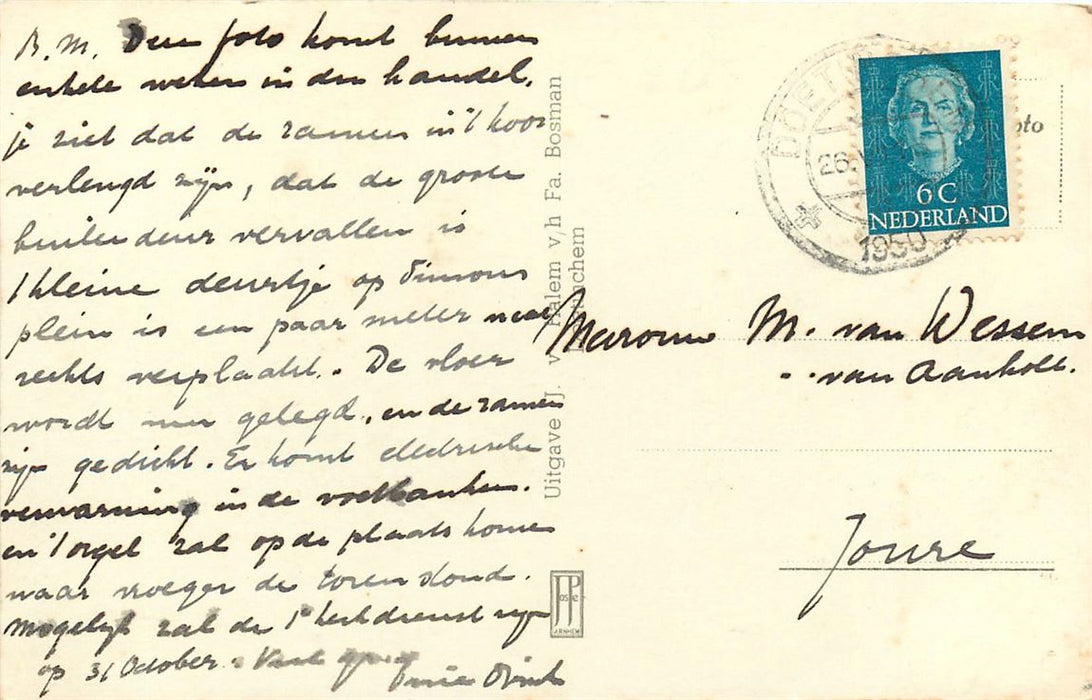 B.M. Deze foto komt binnen
enkele weken in den handel.
je ziet dat de ramen in 't koor
verlengd zijn, dat de groote
buitendeur vervallen is
't kleine deurtje op Simons
plein is een paar meter naar
rechts verplaatst. De vloer
wordt nu gelegd, en de ramen
zijn gedicht. Er komt electrische
verwarming in de voetbanken.
en 't orgel zal op de plaats komen
waar vroeger de toren stond.
Mogelijk zal de 1e kerkdienst zijn
op 31 October.
Uitgave J.J. v Halem v/h Fa. Bosman
JP
ARNHEM
DOET
26
1950
6C
NEDERLAND
oto
Mevrouw M. van Wessem
van Aanholt.
Joure